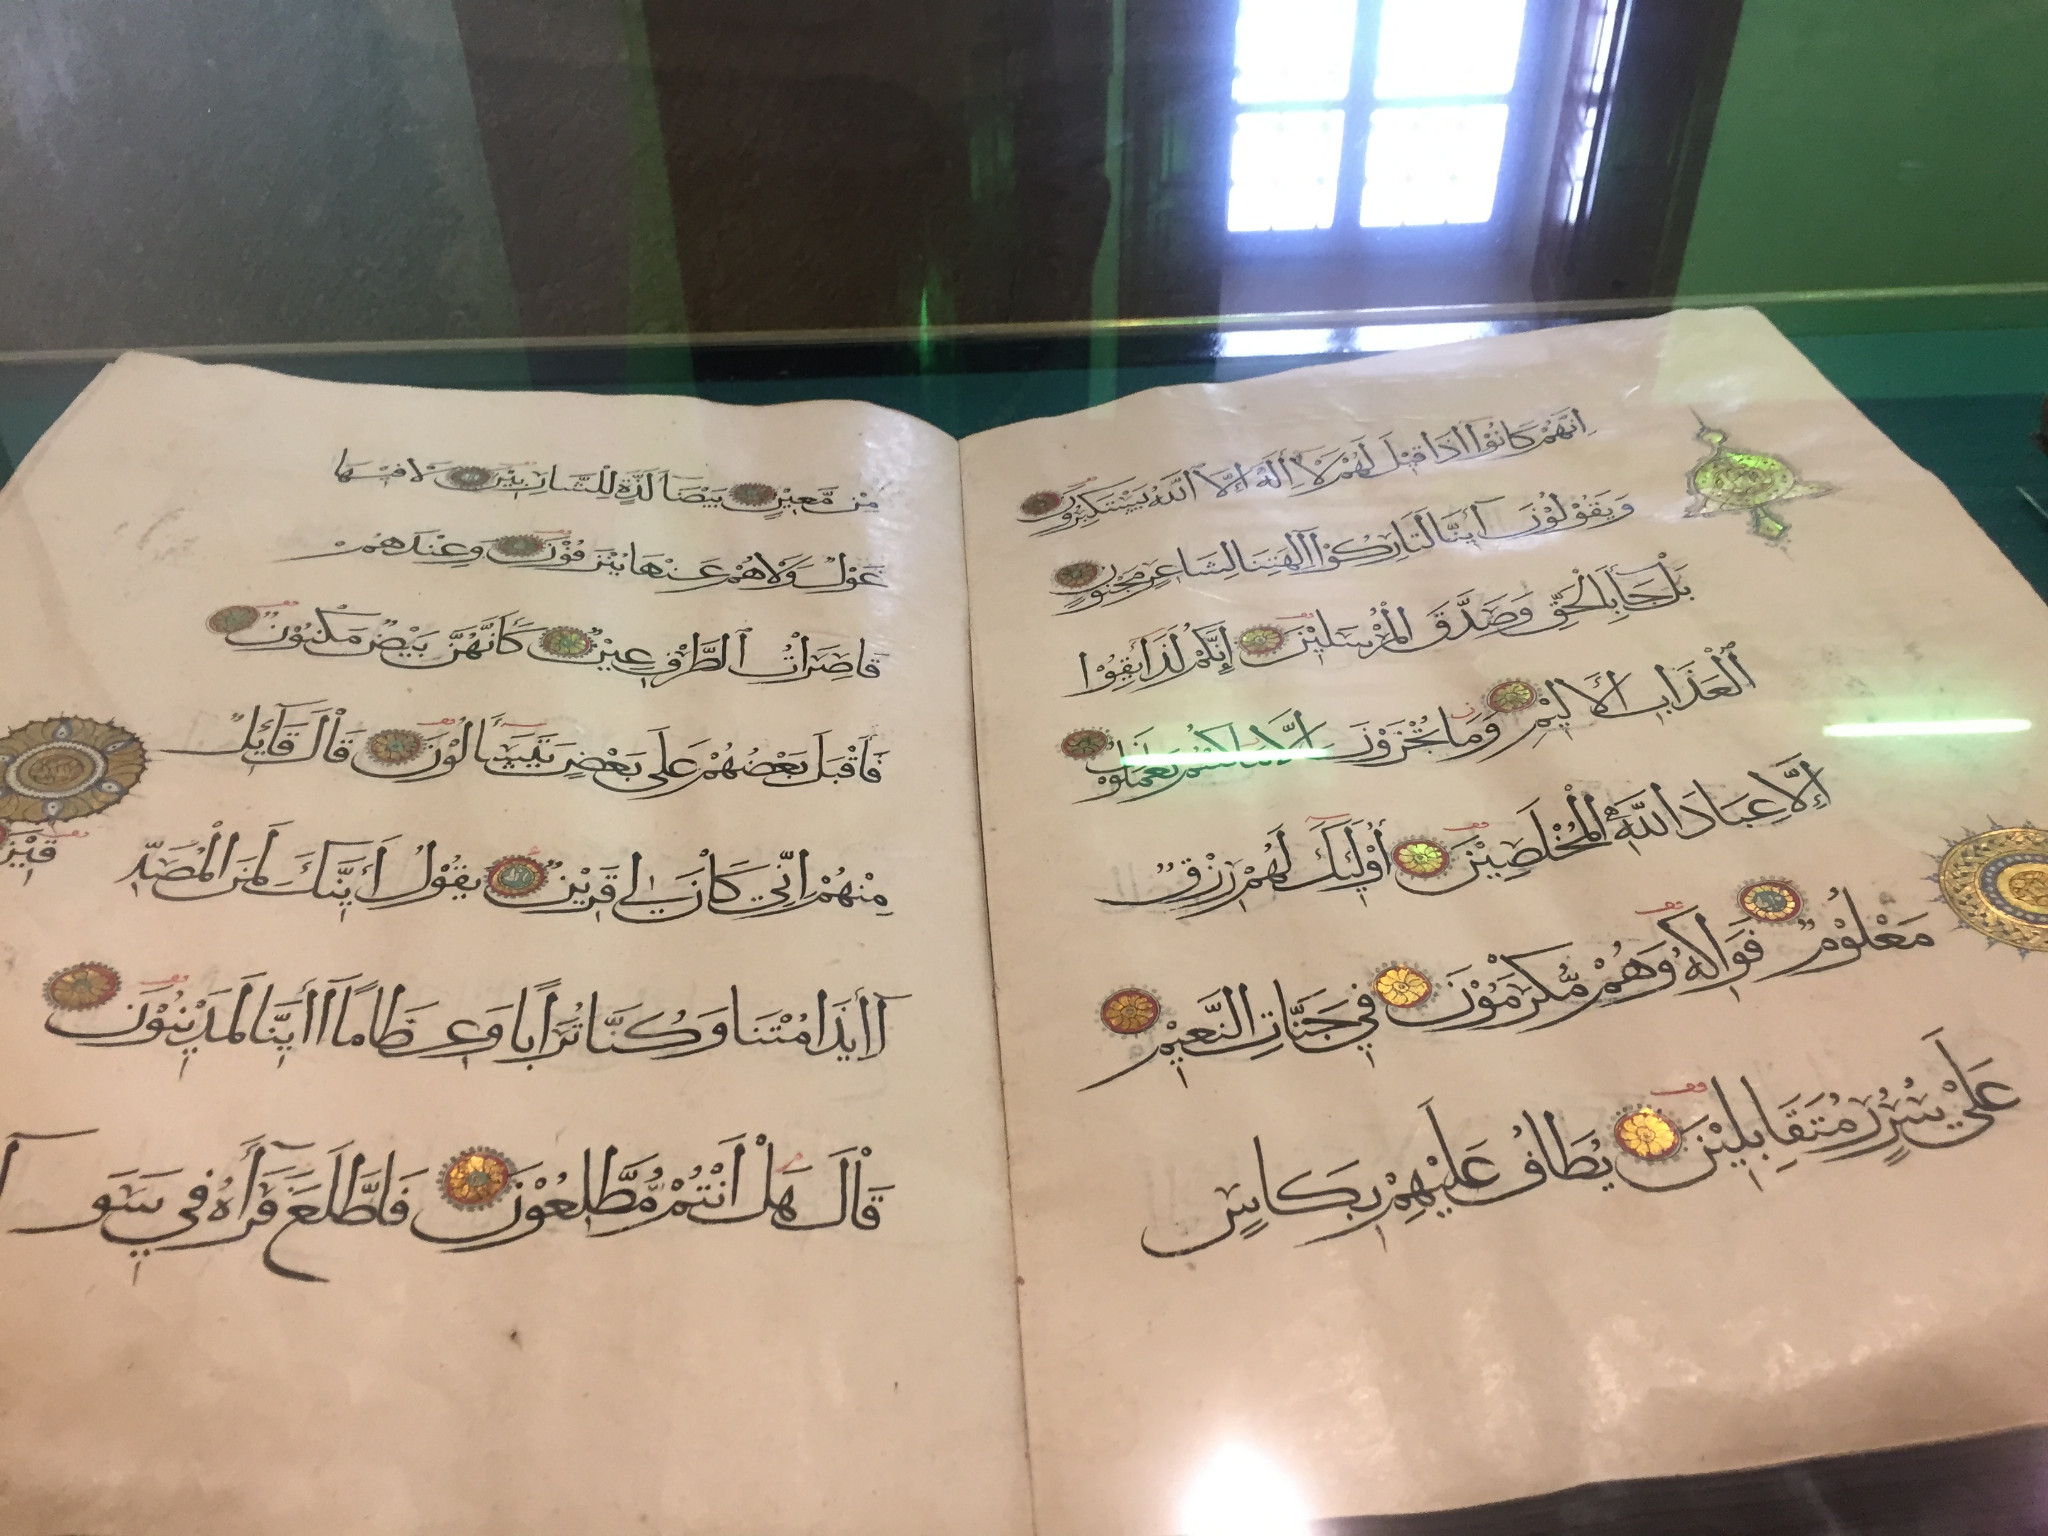 اِنَّهُمْ كَانُوْا اِذَا قِيْلَ لَهُمْ لَا اِلٰهَ اِلَّا اللّٰهُ يَسْتَكْبِرُوْنَ
وَيَقُوْلُوْنَ أَئِنَّا لَتَارِكُوْا اٰلِهَتِنَا لِشَاعِرٍ مَجْنُوْنٍ
بَلْ جَاءَ بِالْحَقِّ وَصَدَّقَ الْمُرْسَلِيْنَ إِنَّكُمْ لَذَائِقُوْا
الْعَذَابِ الْاَلِيْمِ وَمَا تُجْزَوْنَ اِلَّا مَا كُنْتُمْ تَعْمَلُوْنَ
إِلَّا عِبَادَ اللّٰهِ الْمُخْلَصِيْنَ أُوْلٰئِكَ لَهُمْ رِزْقٌ
مَعْلُوْمٌ فَوَاكِهُ وَهُمْ مُّكْرَمُوْنَ فِي جَنَّاتِ النَّعِيْمِ
عَلٰى سُرُرٍ مُتَقَابِلِيْنَ يُطَافُ عَلَيْهِمْ بِكَاسٍ
مِنْ مَّعِيْنٍ بَيْضَاءَ لَذَّةٍ لِلشَّارِبِيْنَ لَا فِيْهَا
غَوْلٌ وَلَا هُمْ عَنْهَا يُنْزَفُوْنَ وَعِنْدَهُمْ
قَاصِرَاتُ الطَّرْفِ عِيْنٌ كَأَنَّهُنَّ بَيْضٌ مَكْنُوْنٌ
فَأَقْبَلَ بَعْضُهُمْ عَلٰى بَعْضٍ يَتَسَاءَلُوْنَ قَالَ قَآئِلٌ
مِنْهُمْ اِنِّي كَانَ لِي قَرِيْنٌ يَقُوْلُ أَئِنَّكَ لَمِنَ الْمُصَدِّ
قِيْنَ
أَئِذَا مِتْنَا وَكُنَّا تُرَابًا وَعِظَامًا أَئِنَّا لَمَدِيْنُوْنَ
قَالَ هَلْ اَنْتُمْ مُّطَّلِعُوْنَ فَاطَّلَعَ فَرَأٰهُ فِي سَوَآءِ